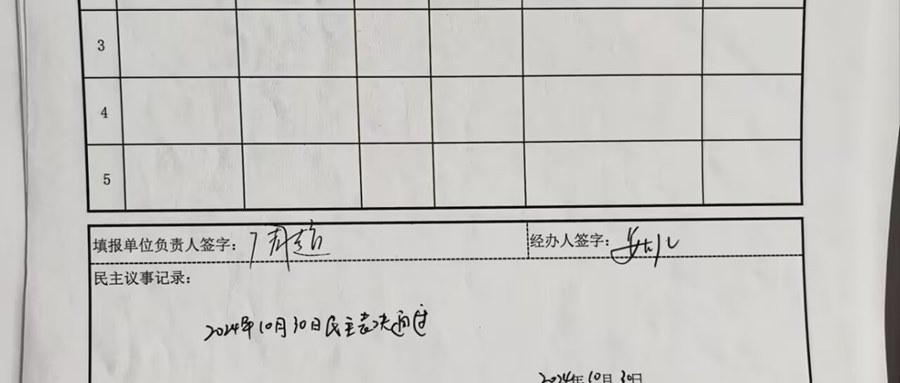 3
4
5
填报单位负责人签字： 经办人签字：
民主议事记录：
2024年10月30日民主表决通过
2024年10月30日